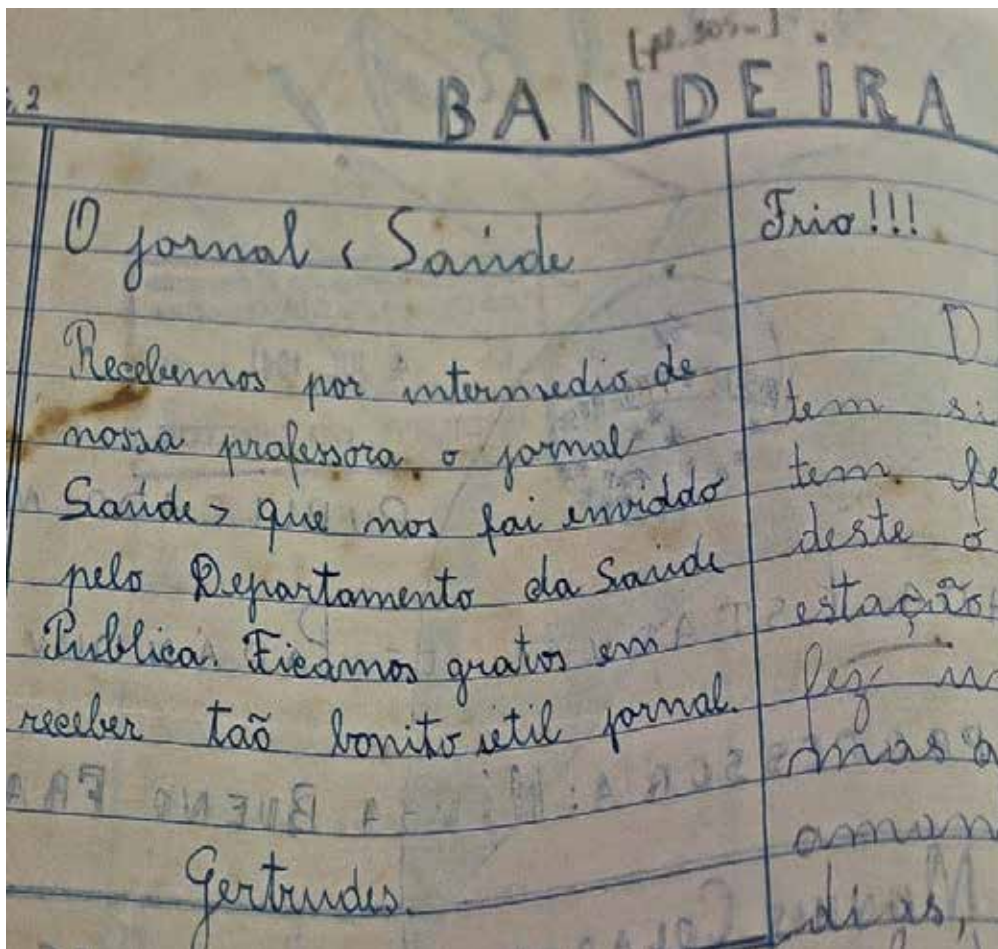 , 2
BANDEIRA
O jornal < Saúde
Recebemos por intermedio de
nossa professora o jornal
Saúde > que nos foi enviddo
pelo Departamento da Saúde
Publica. Ficamos gratos em
receber taõ bonito util jornal.
Gertrudes.
Frio!!!
D
tem si
tem fe
deste o
estação
fez
mas a
aman
dias,